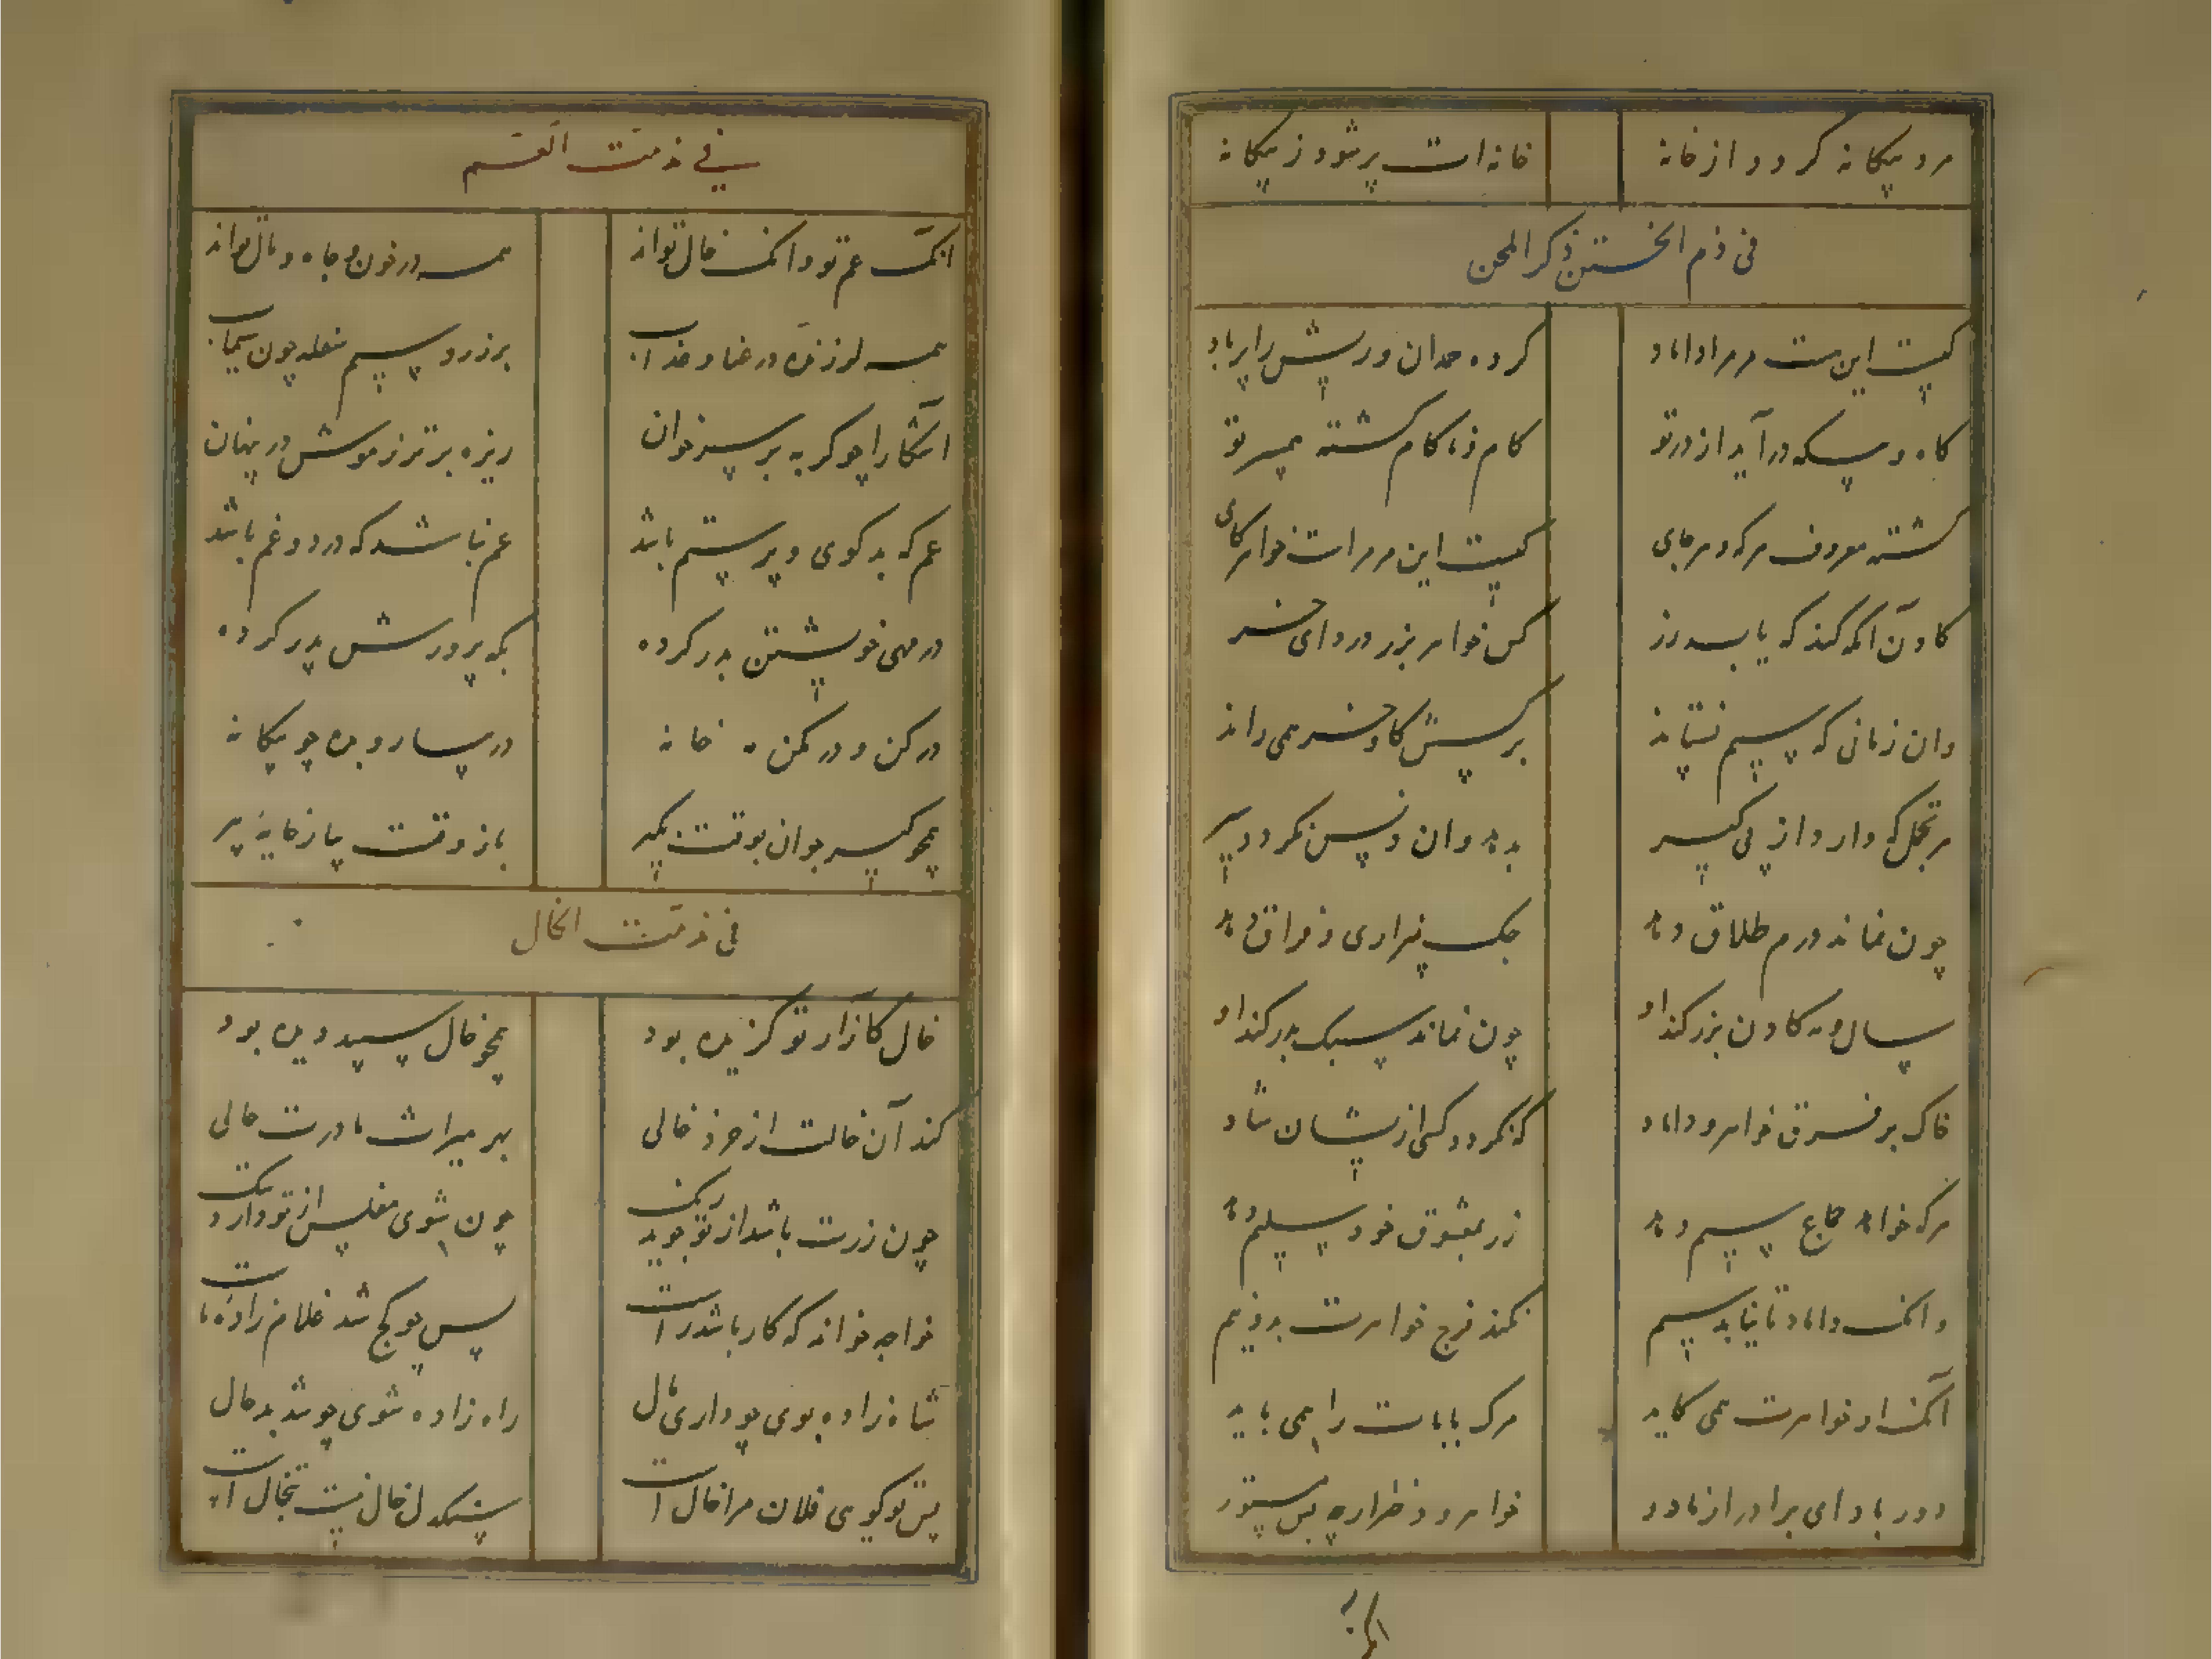 مرد بیکانه کردد از خانه خانه ات پر شود ز بیکانه
فی ذم الختن ذکر المحن
کیست این مر مرا داماد کرده حمدان و ریش را پر باد
کاه و بیکه در آید از در تو کام و ناکام کشته همسر تو
کشته معروف هرکه و هر جای کیست این مردت خواهر کای
کاد آن که کند که یابد زر کس خواهر بزر دردای خسر
وان زمانی که سیم نستاند بر کسش کا و خر همی راند
هر تجمل که دارد از پی کیر بدهد وان نفس نکردد سیر
چون نماند درم طلاق دهد چک بیزاری و فراق دهد
سال و مه کادن بزر کند او چون نماند سبک بدر کند او
خاک بر فرق خواهر و داماد که نکردد کسی ازیشان شاد
هرکه خواهد جماع سیم دهد زر بمعشوق خود سلیم دهد
وانک داماد تا نیابد سیم نکند فرج خواهرت بدو نیم
آنک او خواهرت همی کاید مرک بابات را همی باید
دور باد ای برادر از ما دور خواهر و دختر ارچه بس مستور
انک
فی مذمت العم
انک عم تو و انک خال تواند همه در خون و جاه و مال تواند
همه لرزنده در عنا و عذاب بر زر و سیم سفله چون سیماب
آشکارا چو کربه بر سر خوان ریزه برتر ز موش در پنهان
عم که بدکوی و پر ستم باشد عم نباشد که درد و غم باشد
در مهی خویشتن بدر کرده بکه پرورش پدر کرده
در کن و در مکن همه خانه در سیار و بده چو بیکانه
همچو کیر جوان بوقت بکیر باز وقت بیا ز خایه پیر
فی مذمت الخال
خال کازار تو کزیده بود همچو خال سپید دیده بود
کند آن خالت از خرد خالی بهر میراث مادرت حالی
چون زرت باشد از تو جوید رنک چون شوی مفلس از تو دارد ننک
خواجه خواند که کار باشد راست پس چو کج شد غلام زاده ماست
شاه زاده بوی چو داری مال راه زاده شوی چو شد بد حال
پس تو کویی فلان مرا خال است سنکدل خال نیست تبخال است